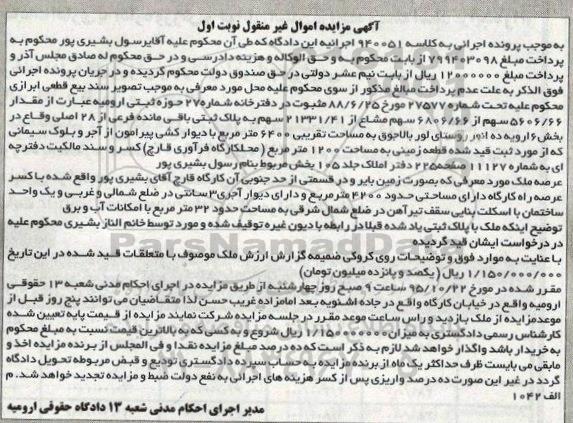 آگهی مزایده اموال غیر منقول نوبت اول
به موجب پرونده اجرائی به کلاسه ۹۴۰۰۵۱ اجرائیه این دادگاه که طی آن محکوم علیه آقایرسول بشیری پور محکوم به
پرداخت مبلغ ۷۹۹۴۰۳۰۹۸ از بابت محکوم به و حق الوکاله و هزینه دادرسی و در حق محکوم له صادق مجلس آذر و
پرداخت مبلغ ۱۲۰۰۰۰۰۰ ریال از بابت نیم عشر دولتی در حق صندوق دولت محکوم گردیده و در جریان پرونده اجرائی
فوق الذکر به علت عدم پرداخت مبالغ مذکور از سوی محکوم علیه محل مورد معرفی به موجب تصویر سند بیع قطعی ابرازی
محکوم علیه تحت شماره ۲۷۵۷۷ مورخ ۸۸/۶/۲۵ مثبوت در دفترخانه شماره ۲۷ حوزه ثبتی ارومیه عبارت از مقدار
۵۶۰۶/۶۶ سهم از ۶۸۰۶/۶۶ سهم مشاع از ۲۱۳۳۱/۴۱ سهم به پلاک ثبتی باقی مانده فرعی از ۲۸ اصلی وقاع در
بخش ۱۶ رویه ده انور روستای لور بالاجوق به مساحت تقریبی ۶۴۰۰ متر مربع با دیوار کشی پیرامون از آجر و بلوک سیمانی
که از مورد ثبت قید شده قطعه زمینی به مساحت ۱۲۰۰ متر مربع (محلکارگاه فرآوری قارچ) کسر و سند مالکیت دفترچه
ای به شماره ۱۱۱۲۷ صفحه ۲۲۵ دفتر املاک جلد ۱۰۵ بخش مربوط بنام رسول بشیری پور
عرصه ملک مورد معرفی که بصورت زمین بایر و در قسمتی از حد جنوبی آن کارگاه قارچ آقای بشیری پور واقع شده با کسر
عرصه راه کارگاه دارای مساحتی حدود ۴۲۰۰ متر مربع و دارای دیوار آجری ۳ سانتی در ضلع شمالی و غربی و یک واحد
ساختمان با اسکلت بنایی سقف تیر آهن در ضلع شمال شرقی به مساحت حدود ۳۲ متر مربع با امکانات آب و برق
توضیح اینکه ملک با پلاک ثبتی یاد شده قبلا در رابطه با دیون غیره توقیف شده و مورد توسط خانم الناز بشیری محکوم علیه
در درخواست ایشان قید گردیده
با عنایت به موارد فوق و توضیحات روی کروکی ضمیمه گزارش ارزش ملک موصوف با متعلقات قید شده در این تاریخ
۱/۱۵۰/۰۰۰/۰۰۰ ریال (یکصد و پانزده میلیون تومان)
مقرر شده در مورخ ۹۵/۱۰/۲۲ ساعت ۹ صبح روز چهارشنبه از طریق مزایده در اجرای احکام مدنی شعبه ۱۳ حقوقی
ارومیه واقع در خیابان کارگاه واقع در جاده اشنویه بعد امامزاده غریب حسن لذا متقاضیان می توانند پنج روز قبل از
موعد مزایده از ملک بازدید و راس ساعت موعد مقرر در جلسه مزایده شرکت نمایند مزایده از قیمت پایه تعیین شده
کارشناس رسمی دادگستری به میزان ۱/۱۵۰/۰۰۰/۰۰۰ ریال شروع و به کسی که به بالاترین قیمت نسبت به مبلغ محکوم
به خریدار باشد واگذار خواهد شد لازم به ذکر است که ده درصد مبلغ مزایده نقدا و فی المجلس از برنده مزایده اخذ و
مابقی می بایست ظرف حداکثر یک ماه از برنده مزایده به حساب سپرده دادگستری تودیع و قبض مربوطه تحویل دادگاه
گردد در غیر این صورت ده درصد واریزی پس از کسر هزینه های اجرائی به نفع دولت ضبط و مزایده تجدید خواهد شد. م
الف ۱۰۴۲
مدیر اجرای احکام مدنی شعبه ۱۳ دادگاه حقوقی ارومیه